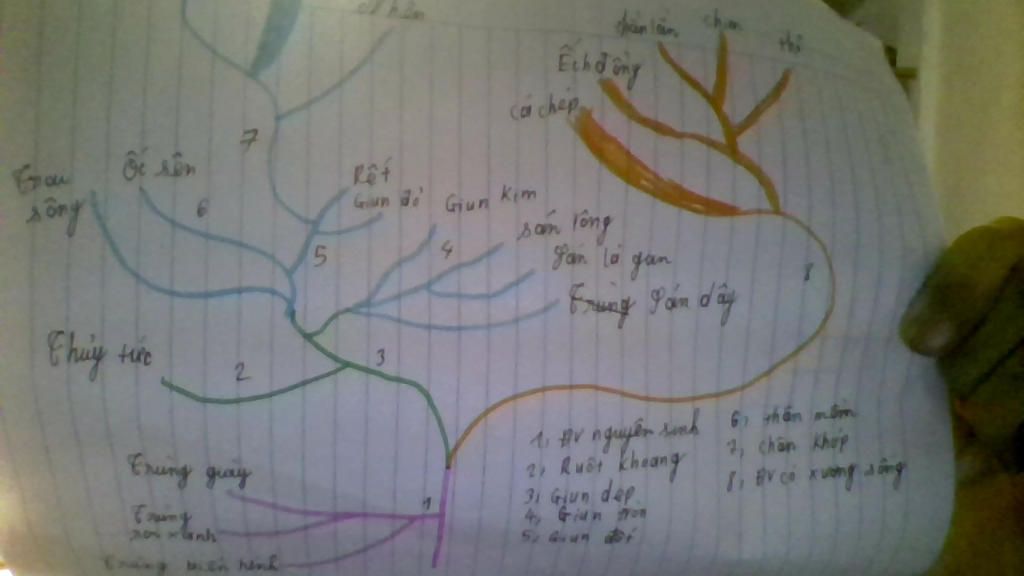 Nhện
thằn lằn
chim
thỏ
Ếch đồng
cá chép
7
Ốc sên
Trai
sông
6
Rết
Giun đỏ
Giun kim
5
4
sán lông
Sán lá gan
Trùng Sán dây
8
Thủy tức
2
3
Trùng giày
1
Trùng
roi xanh
Trùng biến hình
1, ĐV nguyên sinh
2, Ruột khoang
3, Giun dẹp
4, Giun tròn
5, Giun đốt
6, thân mềm
7, chân khớp
8, ĐV có xương sống